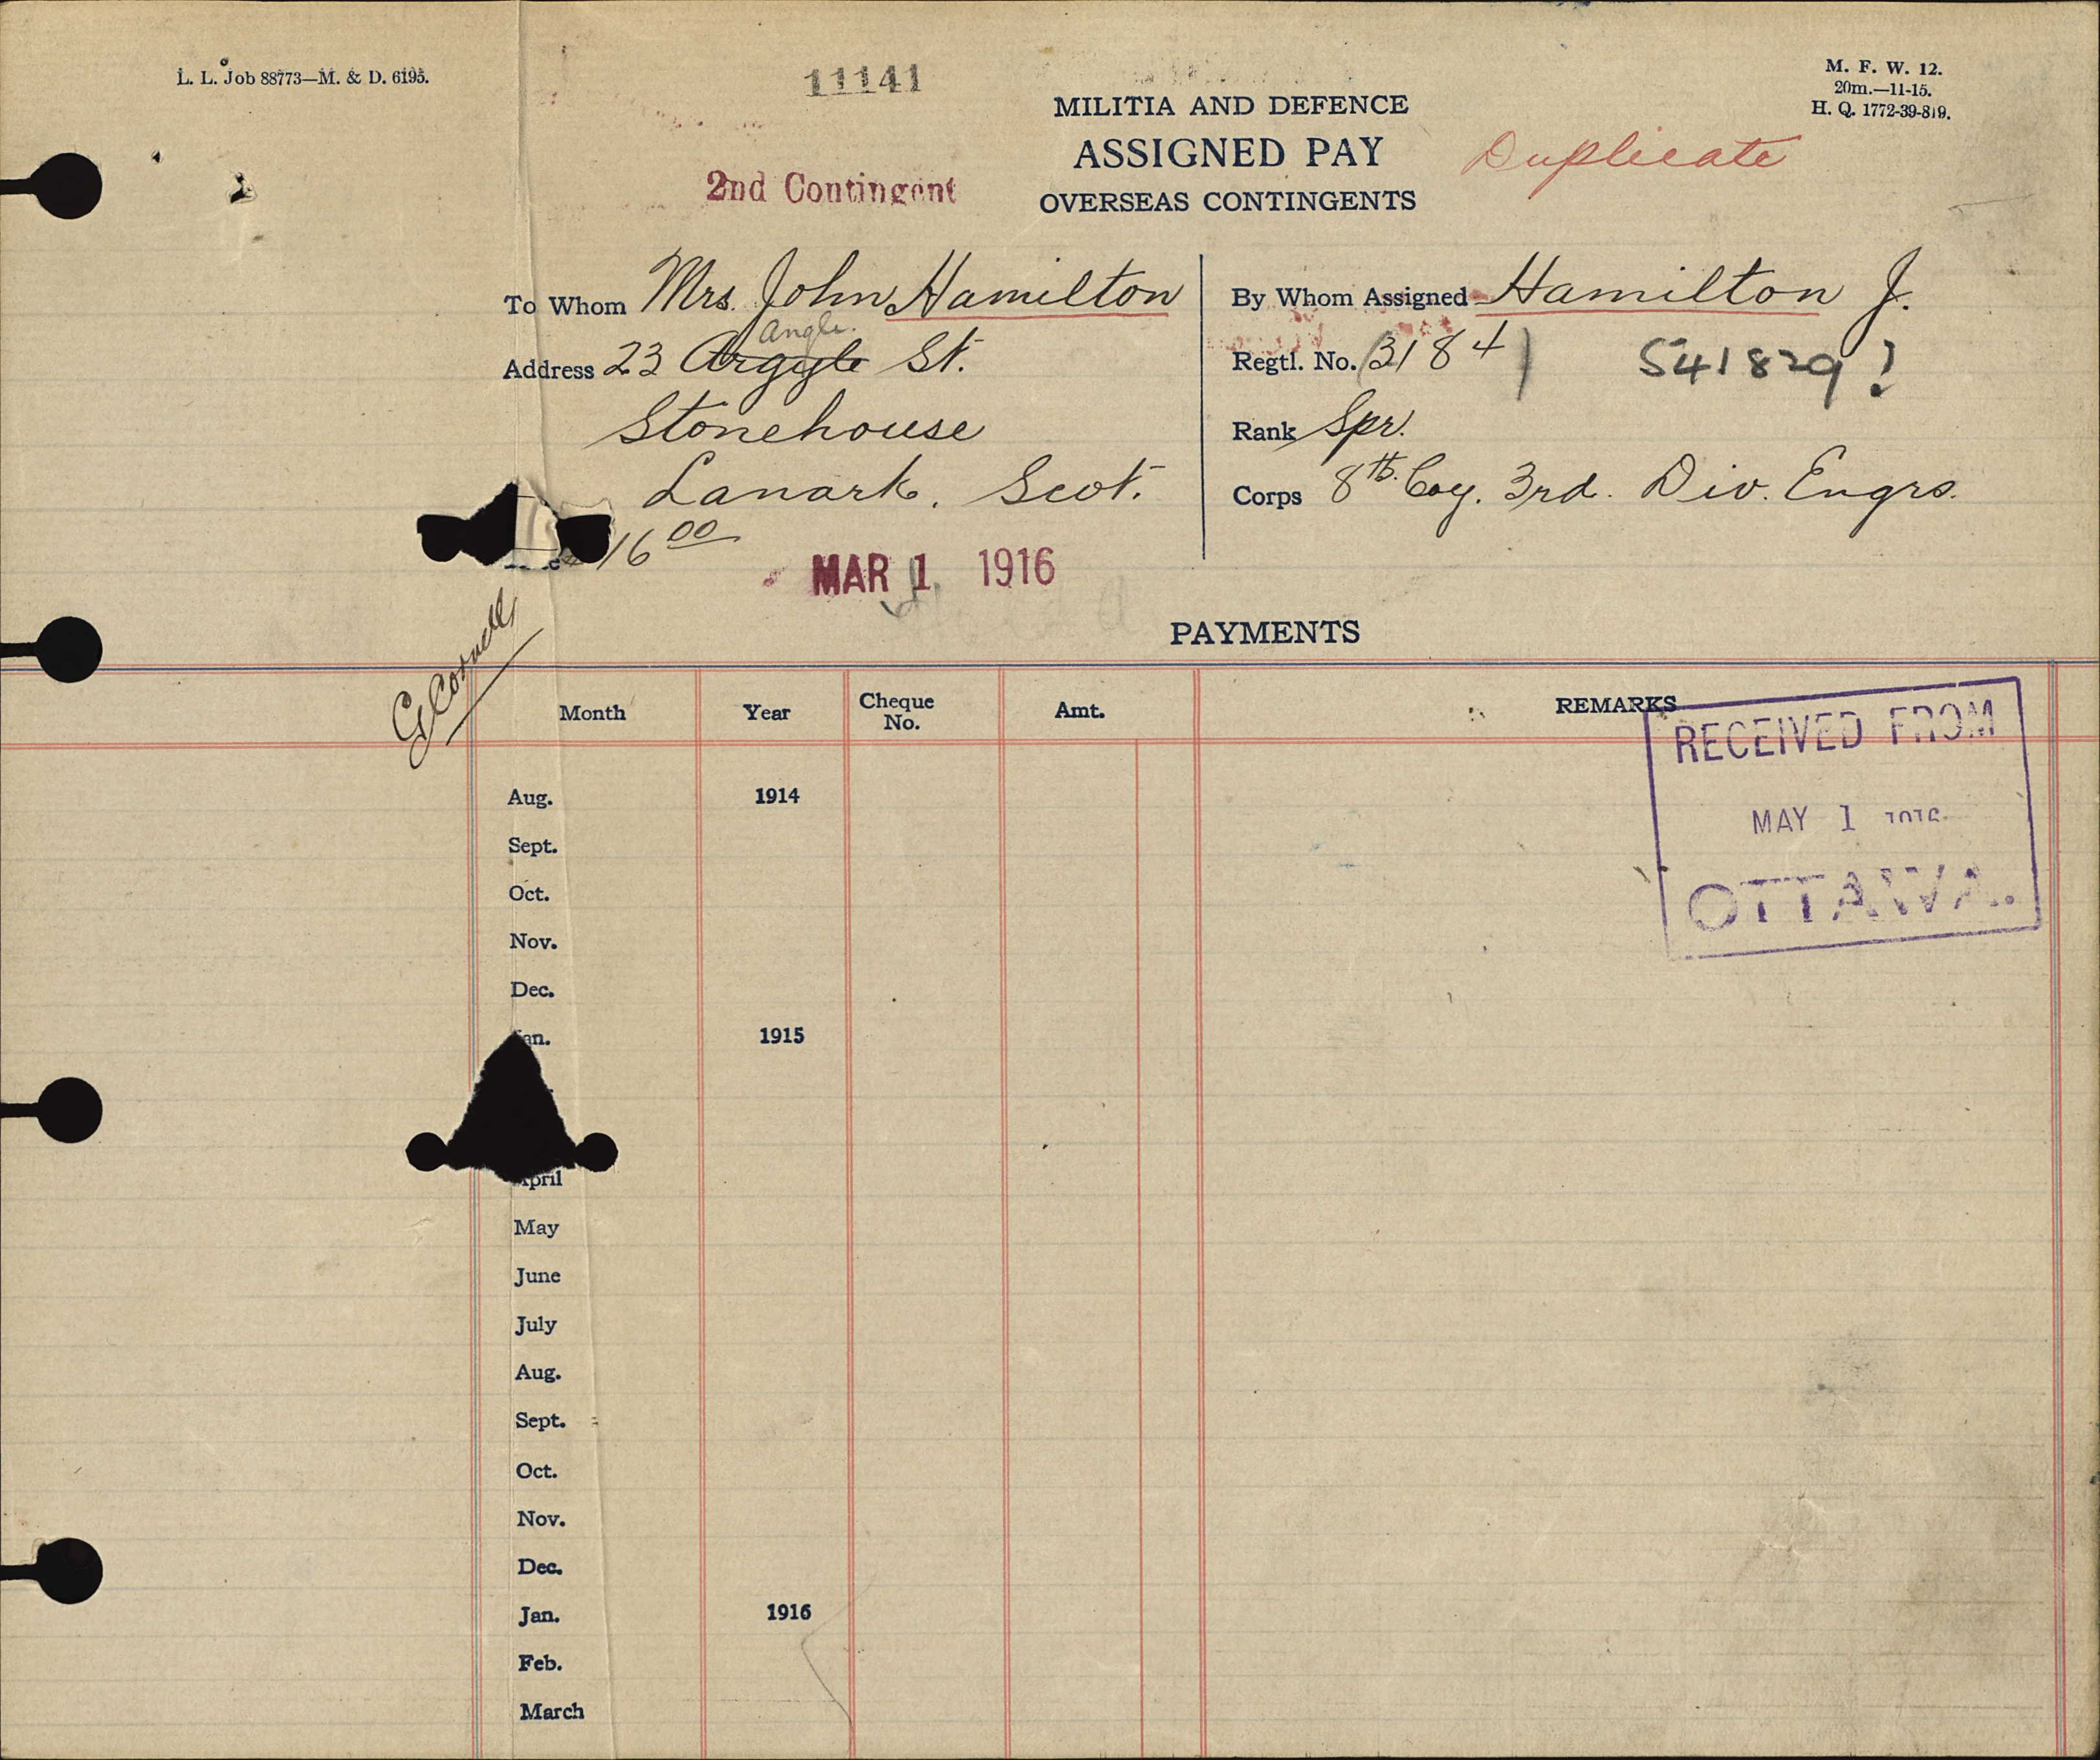 L. L. Job 88773—M. & D. 6195.
11141
M. F. W. 12.
20m.—11-15.
H. Q. 1772-39-819.
MILITIA AND DEFENCE
ASSIGNED PAY
OVERSEAS CONTINGENTS
Duplicate
2nd Contingent
To Whom Mrs. John Hamilton
Angle.
Address 23 Argyle St.
Stonehouse
Lanark, Scot.
16 00
By Whom Assigned Hamilton J.
Regtl. No. (3184) 541829?
Rank Spr.
Corps 8th Coy. 3rd. Div. Engrs.
MAR 1 1916
PAYMENTS
Month Year Cheque No. Amt. REMARKS
RECEIVED FROM
MAY 1 1916
OTTAWA.
Aug. 1914
Sept.
Oct.
Nov.
Dec.
an. 1915
April
May
June
July
Aug.
Sept.
Oct.
Nov.
Dec.
Jan. 1916
Feb.
March